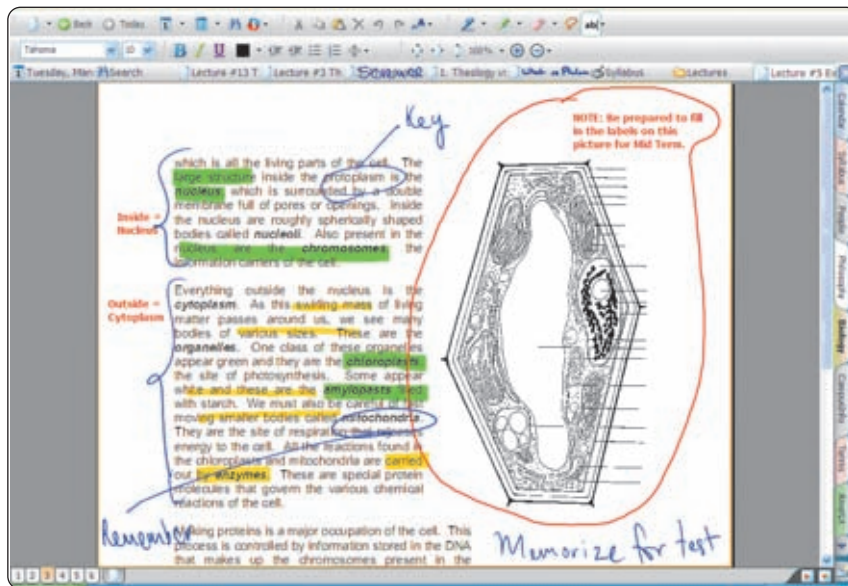 Back Today
Tahoma 10 B I U 100%
Tuesday, Man Search Lecture #13 T Lecture #3 Th I. Theology vs Syllabus Lectures Lecture #5 E
Key
NOTE: Be prepared to fill
in the labels on this
picture for Mid Term.
which is all the living parts of the cell. The
large structure inside the protoplasm is the
nucleus, which is surrounded by a double
membrane full of pores or openings. Inside
the nucleus are roughly spherically shaped
bodies called nucleoli. Also present in the
nucleus are the chromosomes, the
information carriers of the cell.
Inside =
Nucleus
Everything outside the nucleus is the
cytoplasm. As this swirling mass of living
matter passes around us, we see many
bodies of various sizes. These are the
organelles. One class of these organelles
appear green and they are the chloroplasts,
the site of photosynthesis. Some appear
white and these are the amylopasts filled
with starch. We must also be careful of
moving smaller bodies called mitochondria.
They are the site of respiration that
energy to the cell. All the reactions found in
the chloroplasts and mitochondria are carried
out by enzymes. These are special protein
molecules that govern the various chemical
reactions of the cell.
Outside =
Cytoplasm
Remember
Making proteins is a major occupation of the cell. This
process is controlled by information stored in the DNA
that makes up the chromosomes present in the
Memorize for test
Calendar
Syllabus
Philosophy
Biology
1 2 3 4 5 6